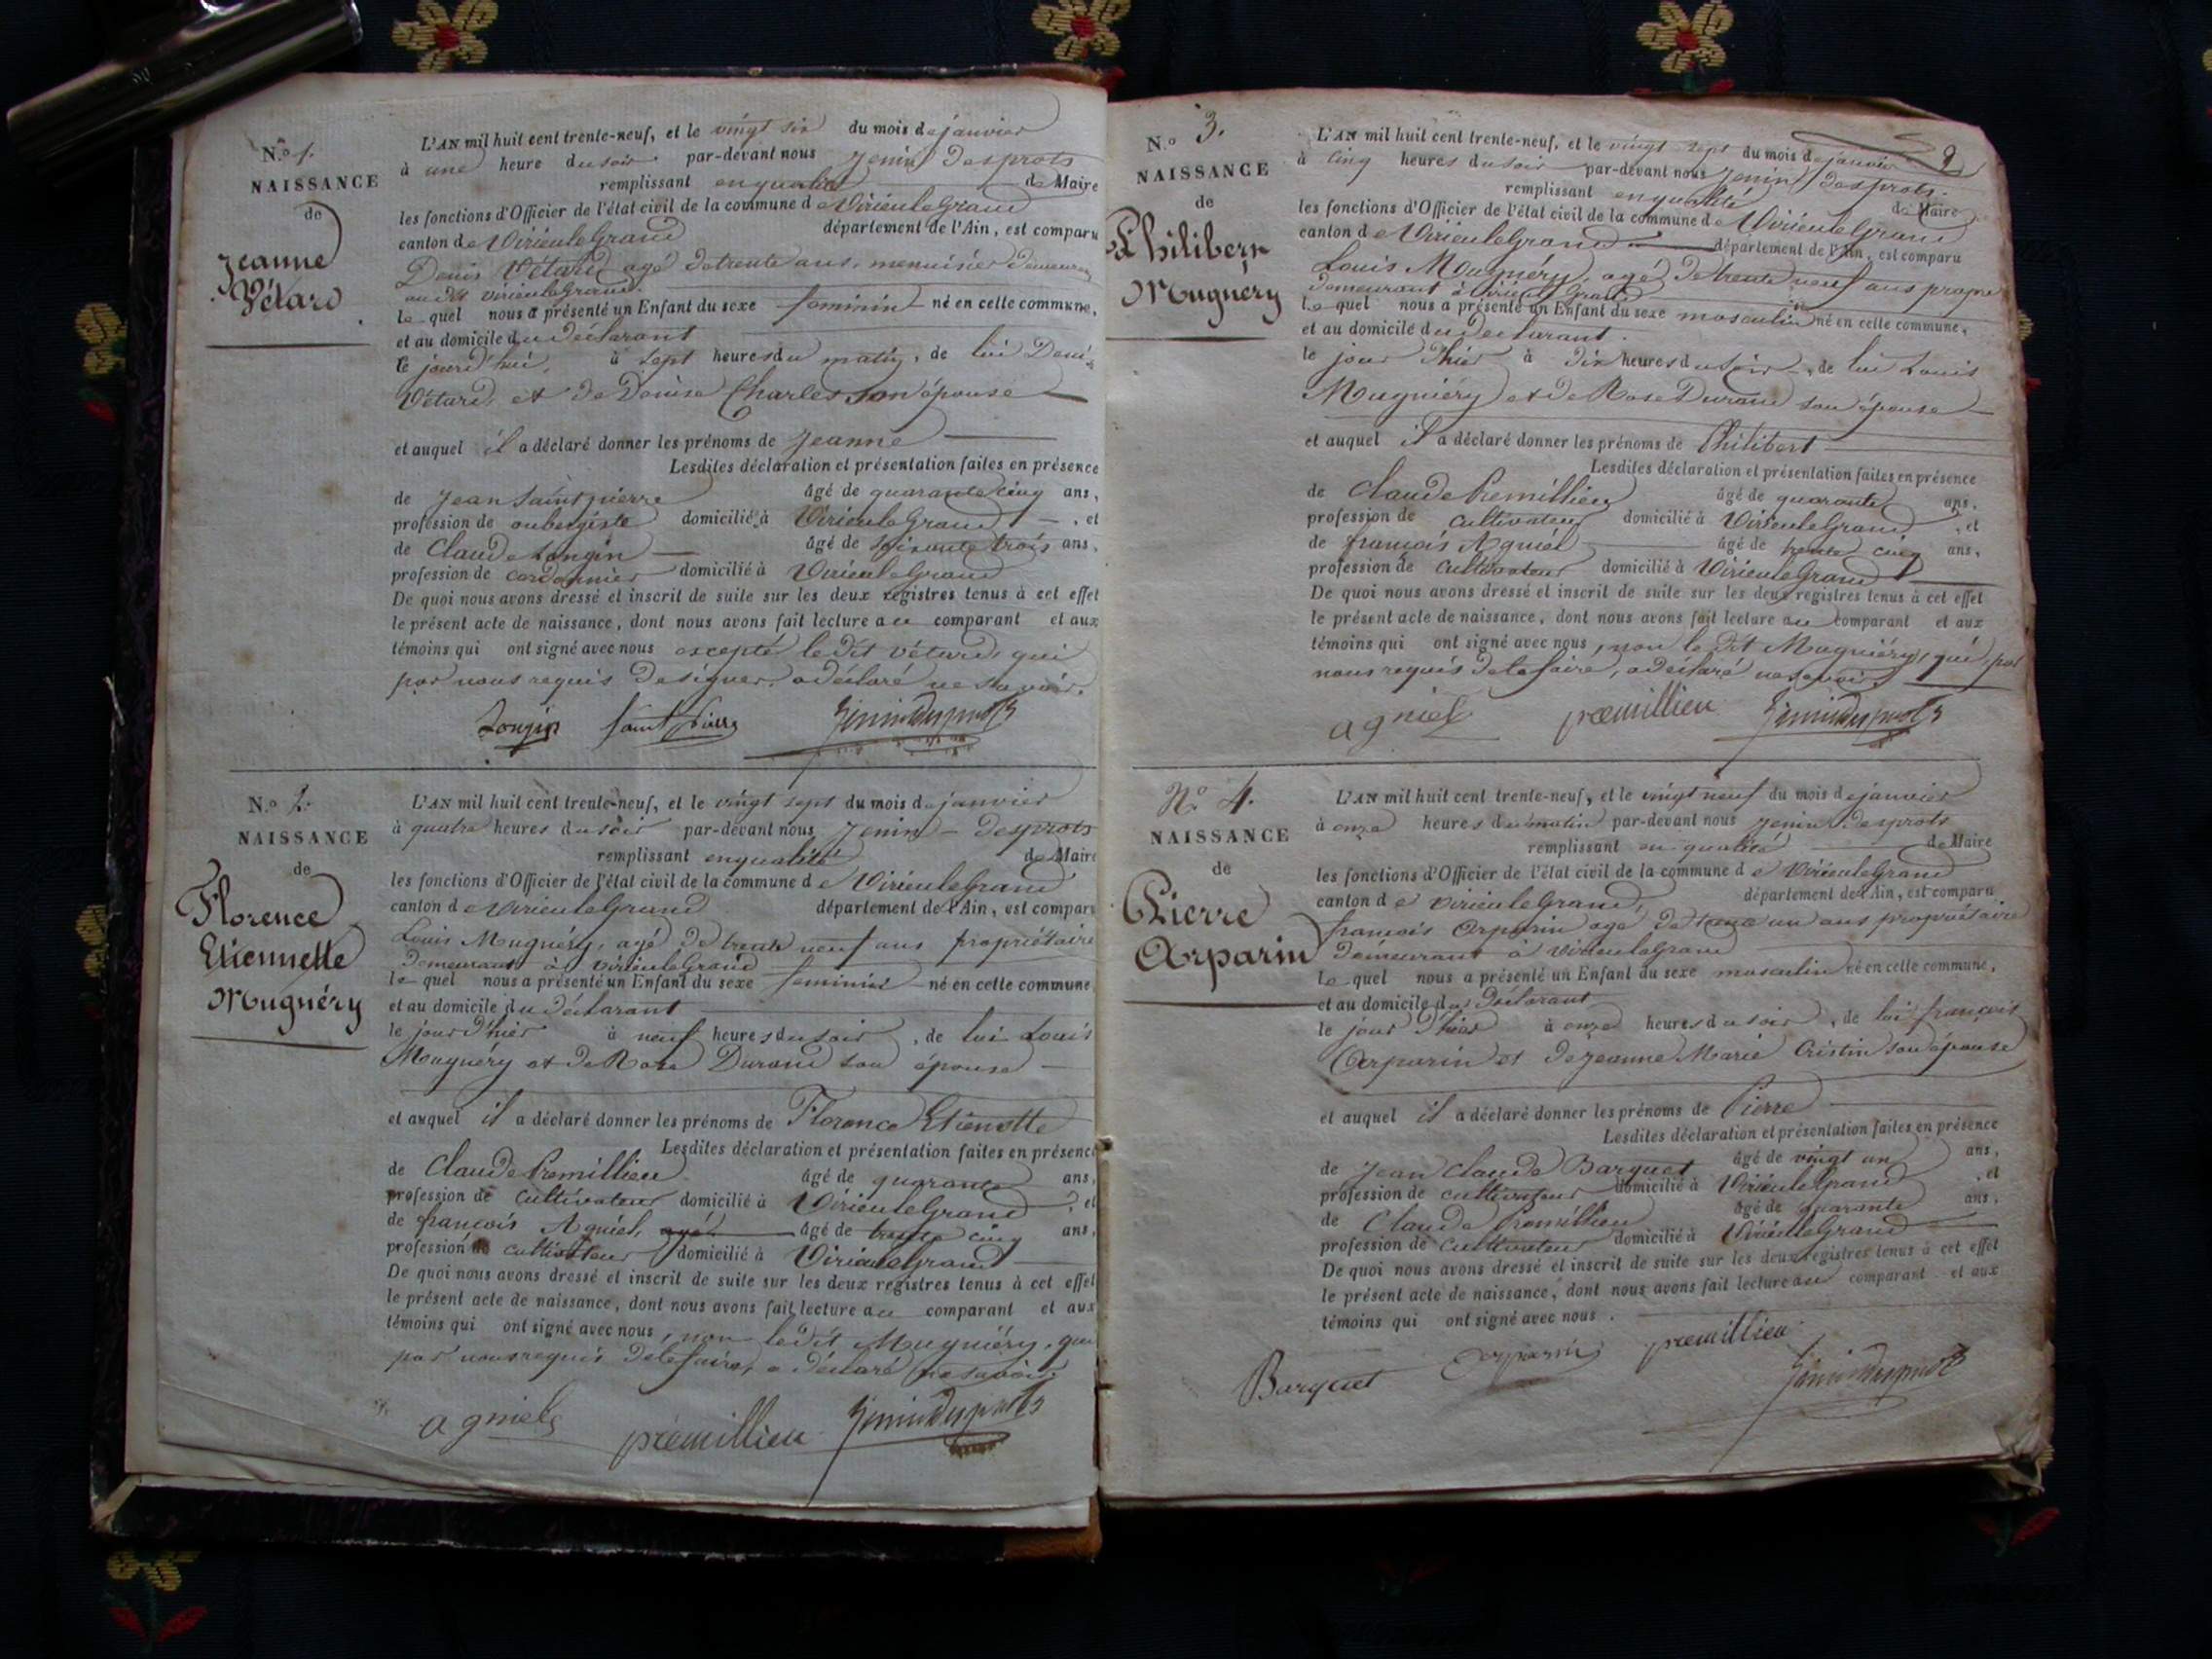 N.o 1.
NAISSANCE
de
Jeanne
Vétard
L'AN mil huit cent trente-neuf, et le vingt six du mois de janvier
à une heure du soir par-devant nous Jenin Desprots
remplissant en qualité de Maire
les fonctions d'Officier de l'état civil de la commune de Virieu le Grand
canton de Virieu le Grand département de l'Ain, est comparu
Denis Vétard, agé de trente ans, menuisier demeurant
au dit virieu le Grand.
le quel nous a présenté un Enfant du sexe feminin né en cette commune,
et au domicile du déclarant
le jourd'hui, à sept heures du matin, de lui Denis
Vétard, et de Denise Charles son épouse
et auquel il a déclaré donner les prénoms de Jeanne
Lesdites déclaration et présentation faites en présence
de Jean Saint pierre âgé de quarante cinq ans,
profession de aubergiste domicilié à Virieu le Grand, et
de Claude Longin âgé de soixante trois ans,
profession de cordonnier domicilié à Virieu le Grand
De quoi nous avons dressé et inscrit de suite sur les deux registres tenus à cet effet
le présent acte de naissance, dont nous avons fait lecture au comparant et aux
témoins qui ont signé avec nous excepté le dit Vétard, qui
par nous requis de signer, a déclaré ne savoir.
Longin Saint Pierre Jenin Desprots
N.o 2.
NAISSANCE
de
Florence
Etiennette
Mugnéry
L'AN mil huit cent trente-neuf, et le vingt sept du mois de janvier
à quatre heures du soir par-devant nous Jenin Desprots
remplissant en qualité de Maire
les fonctions d'Officier de l'état civil de la commune de Virieu le Grand
canton de Virieu le Grand département de l'Ain, est comparu
Louis Mugnéry, agé de trente neuf ans propriétaire
demeurant à virieu le Grand
le quel nous a présenté un Enfant du sexe feminin né en cette commune
et au domicile du déclarant
le jour d'hier à neuf heures du soir, de lui Louis
Mugnéry et de Rose Durand son épouse
et auquel il a déclaré donner les prénoms de Florence Etienette
Lesdites déclaration et présentation faites en présence
de Claude Premillieu âgé de quarante ans,
profession de cultivateur domicilié à Virieu le Grand, et
de françois Agniel, agé âgé de trente cinq ans,
profession de cultivateur domicilié à Virieu le Grand
De quoi nous avons dressé et inscrit de suite sur les deux registres tenus à cet effet
le présent acte de naissance, dont nous avons fait lecture au comparant et aux
témoins qui ont signé avec nous, non le dit Mugniéry, qui
par nous requis de le faire, a déclaré ne savoir.
agniel premillieu Jenin Desprots
N.o 3.
NAISSANCE
de
Philibert
Mugnery
L'AN mil huit cent trente-neuf, et le vingt sept du mois de janvier
à cinq heures du soir par-devant nous Jenin Desprots
remplissant en qualité de Maire
les fonctions d'Officier de l'état civil de la commune de Virieu le Grand
canton de Virieu le Grand département de l'Ain, est comparu
Louis Mougnéry, agé de trente neuf ans propre
demeurant à virieu le Grand
le quel nous a présenté un Enfant du sexe masculin né en cette commune,
et au domicile du déclarant.
le jour d'hier à dix heures du soir, de lui Louis
Mugniéry et de Rose Durand son épouse
et auquel il a déclaré donner les prénoms de Philibert
Lesdites déclaration et présentation faites en présence
de Claude Premillieu âgé de quarante ans,
profession de cultivateur domicilié à Virieu le Grand, et
de françois Agniel âgé de trente cinq ans,
profession de cultivateur domicilié à Virieu le Grand
De quoi nous avons dressé et inscrit de suite sur les deux registres tenus à cet effet
le présent acte de naissance, dont nous avons fait lecture au comparant et aux
témoins qui ont signé avec nous, non le dit Mugniéry, qui, par
nous requis de le faire, a déclaré ne savoir.
agniel premillieu Jenin Desprots
N.o 4.
NAISSANCE
de
Pierre
Arparin
L'AN mil huit cent trente-neuf, et le vingt neuf du mois de janvier
à onze heures du matin par-devant nous Jenin Desprots
remplissant en qualité de Maire
les fonctions d'Officier de l'état civil de la commune de Virieu le Grand
canton de Virieu le Grand, département de l'Ain, est comparu
françois Arparin agé de trente un ans propriétaire
demeurant à virieu le Grand
le quel nous a présenté un Enfant du sexe masculin né en cette commune,
et au domicile du déclarant
le jour d'hier à onze heures du soir, de lui françois
Arparin et de jeanne Marie Cristin son épouse
et auquel il a déclaré donner les prénoms de Pierre
Lesdites déclaration et présentation faites en présence
de Jean Claude Barquet âgé de vingt un ans,
profession de cultivateur domicilié à Virieu le Grand, et
de Claude Premillieu âgé de quarante ans,
profession de cultivateur domicilié à Virieu le Grand
De quoi nous avons dressé et inscrit de suite sur les deux registres tenus à cet effet
le présent acte de naissance, dont nous avons fait lecture au comparant et aux
témoins qui ont signé avec nous.
Barquet arparin premillieu
Jenin Desprots